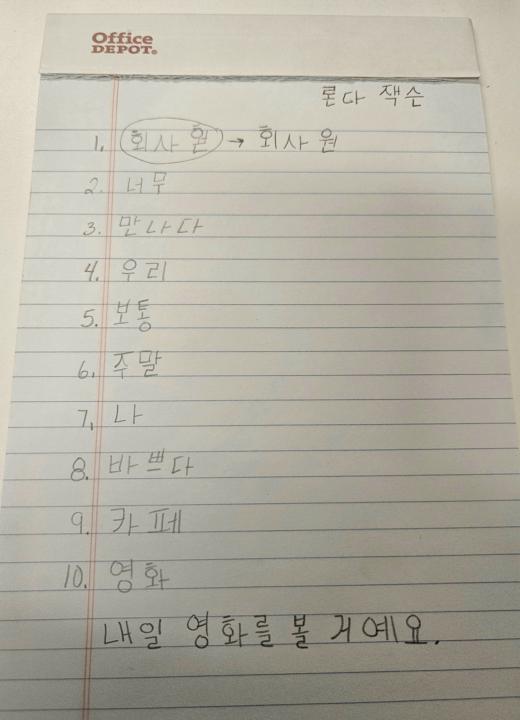 Office
DEPOT®
론다 잭슨
1. 회사휜 → 회사원
2. 너무
3. 만나다
4. 우리
5. 보통
6. 주말
7. 나
8. 바쁘다
9. 카페
10. 영화
내일 영화를 볼 거예요.